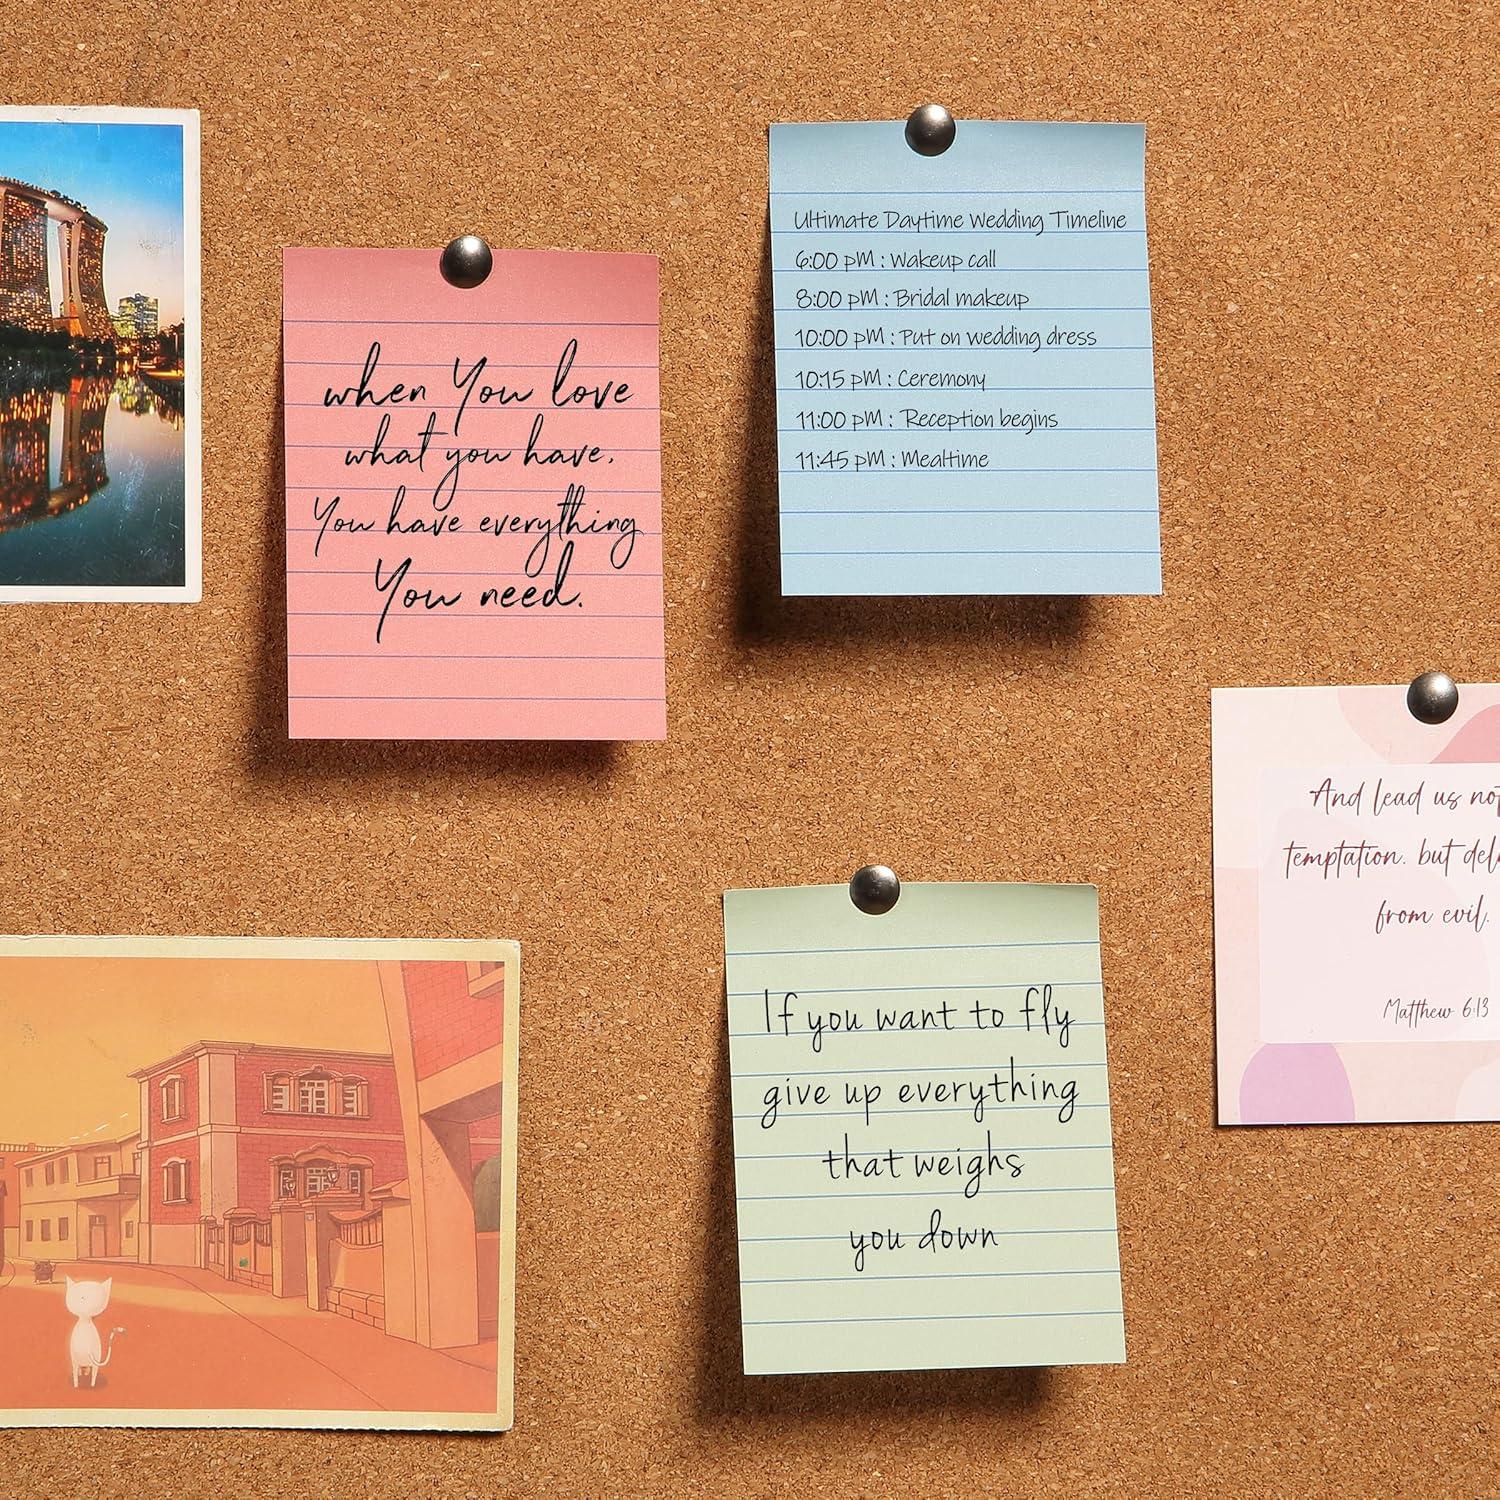 when You love
what you have.
You have everything
You need.
Ultimate Daytime Wedding Timeline
6:00 pM : Wakeup call
8:00 pM : Bridal makeup
10:00 pM : Put on wedding dress
10:15 pM : Ceremony
11:00 pM : Reception begins
11:45 pM : Mealtime
And lead us
temptation. but
from evil.
Matthew 6:13
If you want to fly
give up everything
that weighs
you down